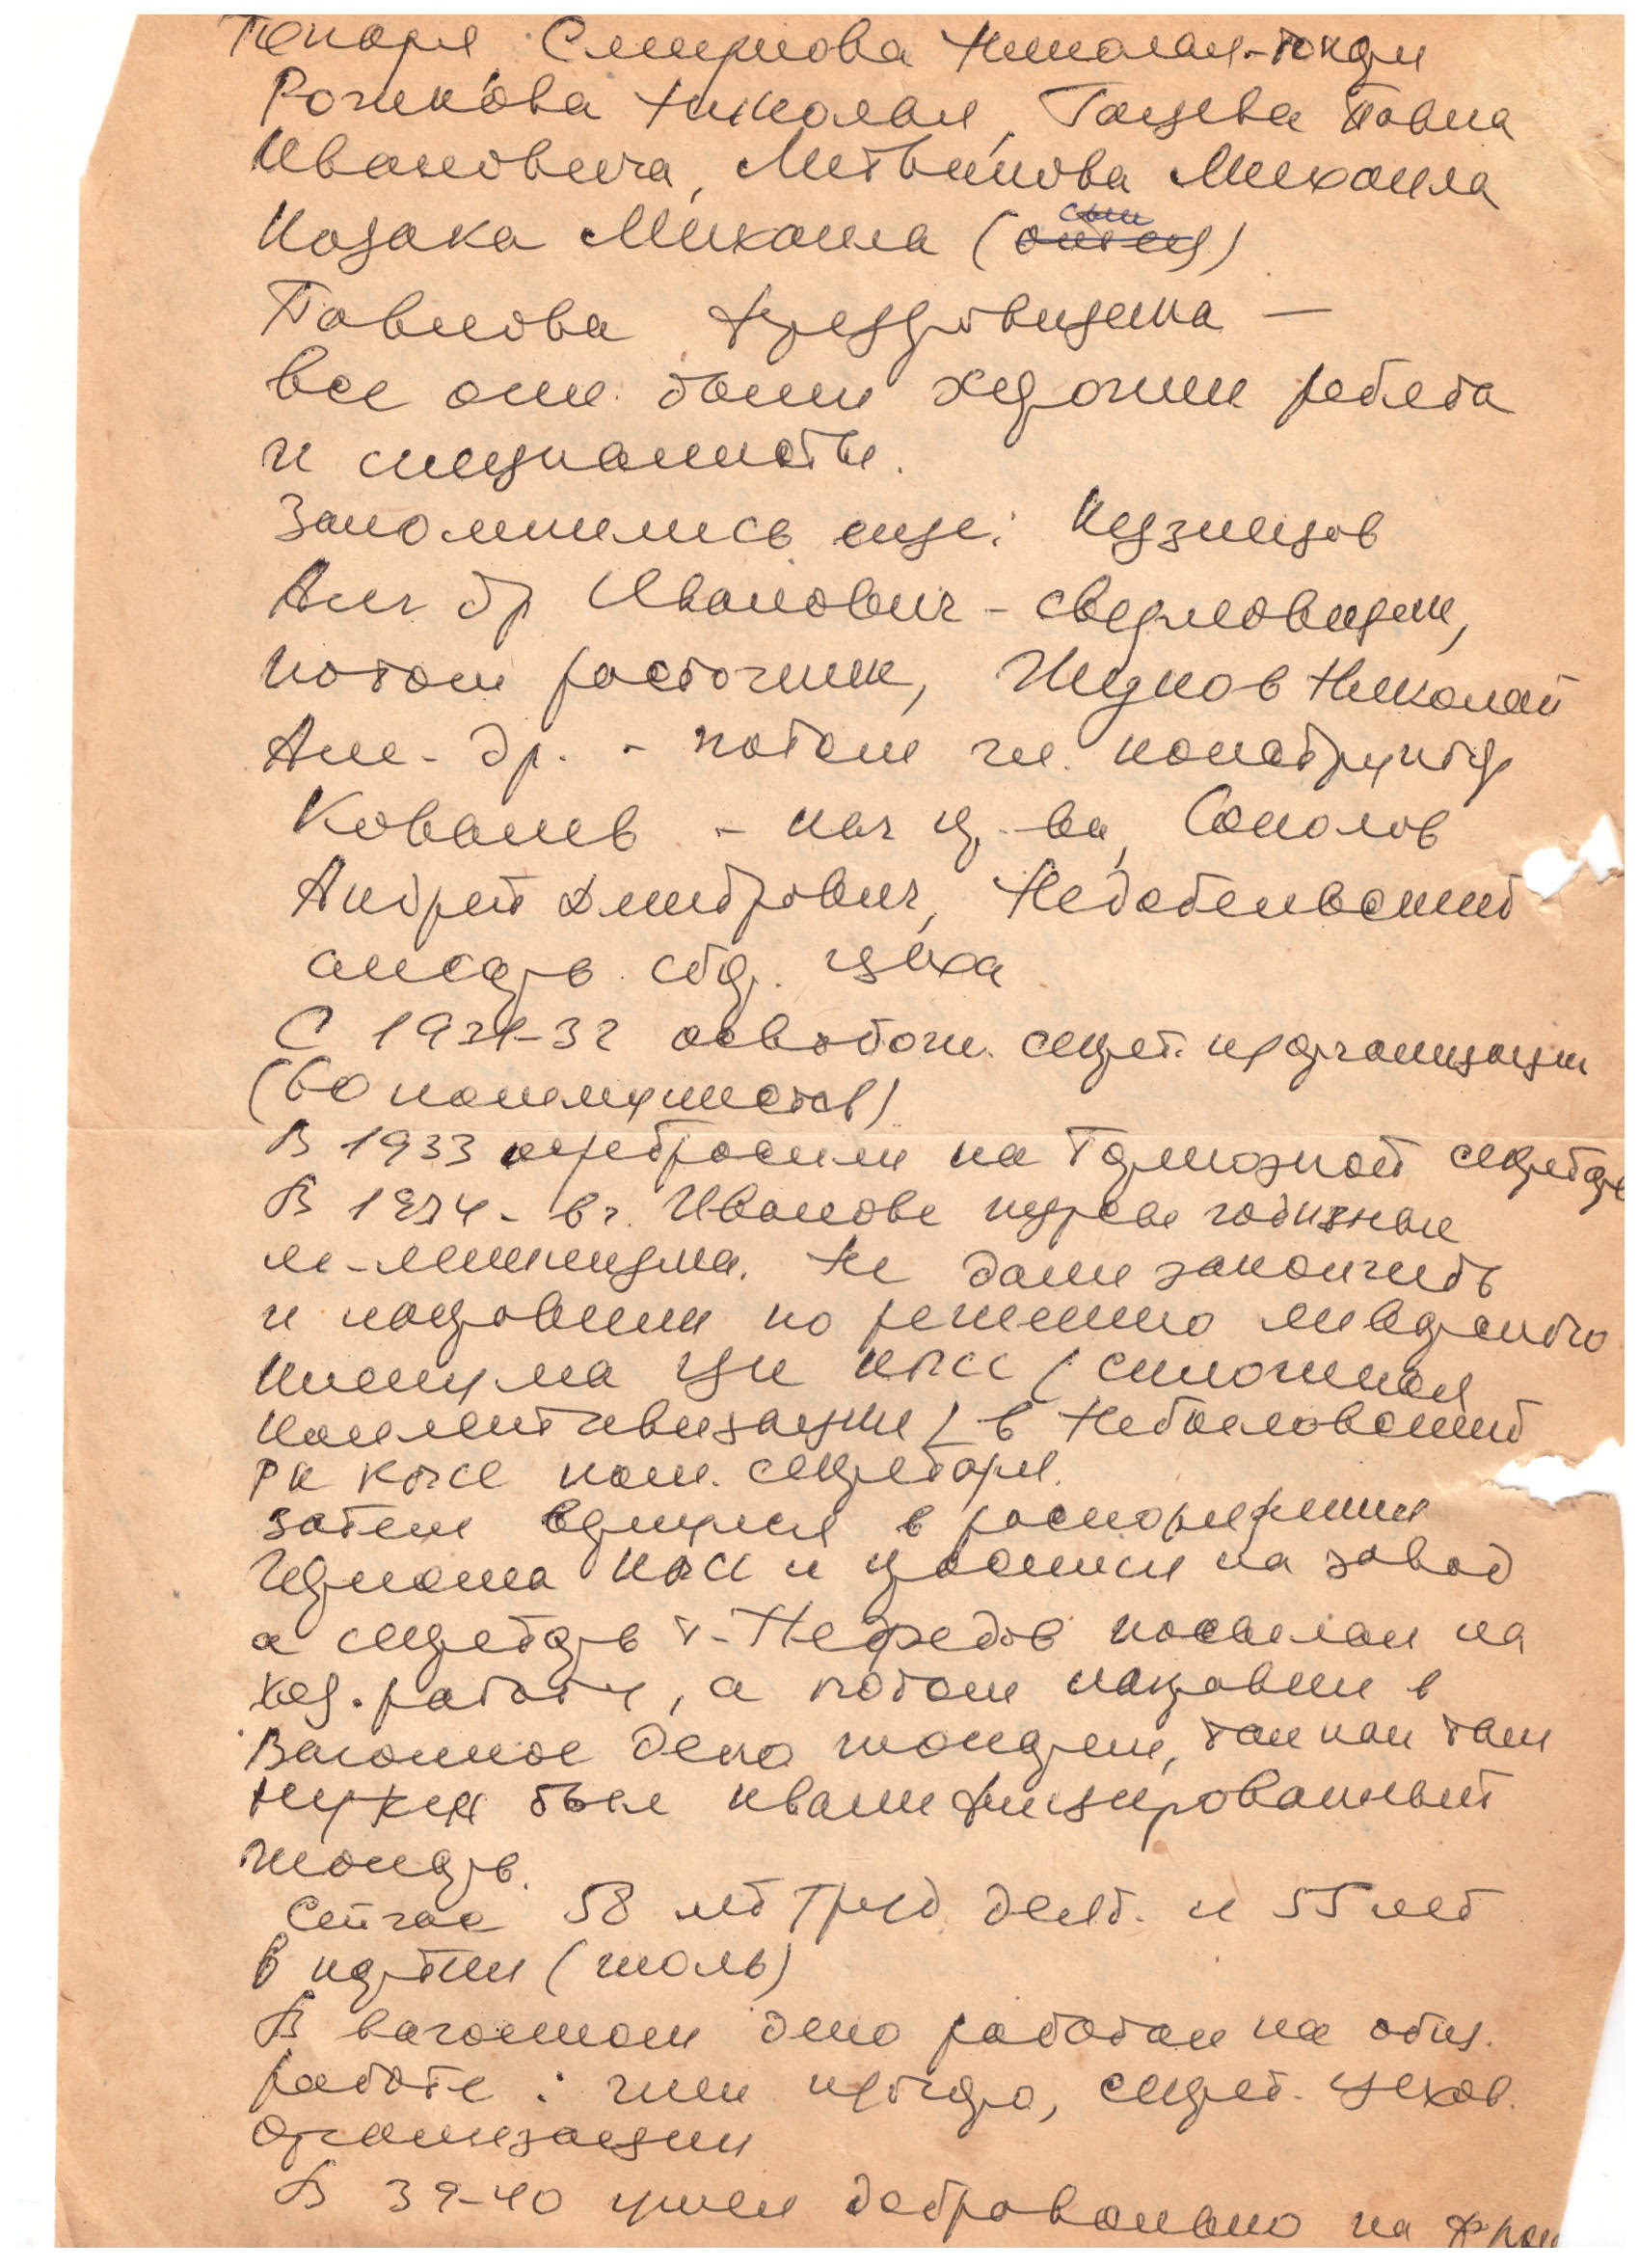 Токаря Смирнова Николая-токаря
Рожкова Николая, Гацева Павла
Ивановича, Литвинова Михаила
Козака Михаила (отец) сын
Павлова фрезеровщика —
все они были хорошие ребята
и специалисты.
Запомнились еще: Кузнецов
Ал-др Иванович - сверловщик,
потом расточник, Жуков Николай
Алек-др. - потом гл. конструктор
Ковалев - нач ц-ва, Соколов
Андрей Дмитриевич,
слесарь сбор. цеха
С 1931-32 освобожд. секрет. парторганизации
(60 коммунистов)
В 1933 перебросили на Тормозной секретарь
В 1934 - в г. Иванове курсы годичные
м-ленинизма. Не дали закончить
и направили по решению январского
пленума ЦК КПСС (сплошная
коллективизация) в Небыловский
РК КПСС пом. секретаря.
затем вернулся в распоряжении
Горкома КПСС и просился на завод
а секретарь т. Нефедов посылал на
хоз. работу, а потом направил в
Вагонное депо токарем, так как там
нужен был квалифицированный
токарь.
Сейчас 58 лет труд. деят. и 55 лет
в партии (июль)
В вагонном депо работал на общ.
работе: член партбюро, секрет. цехов.
организации
В 39-40 ушел добровольно на фрон